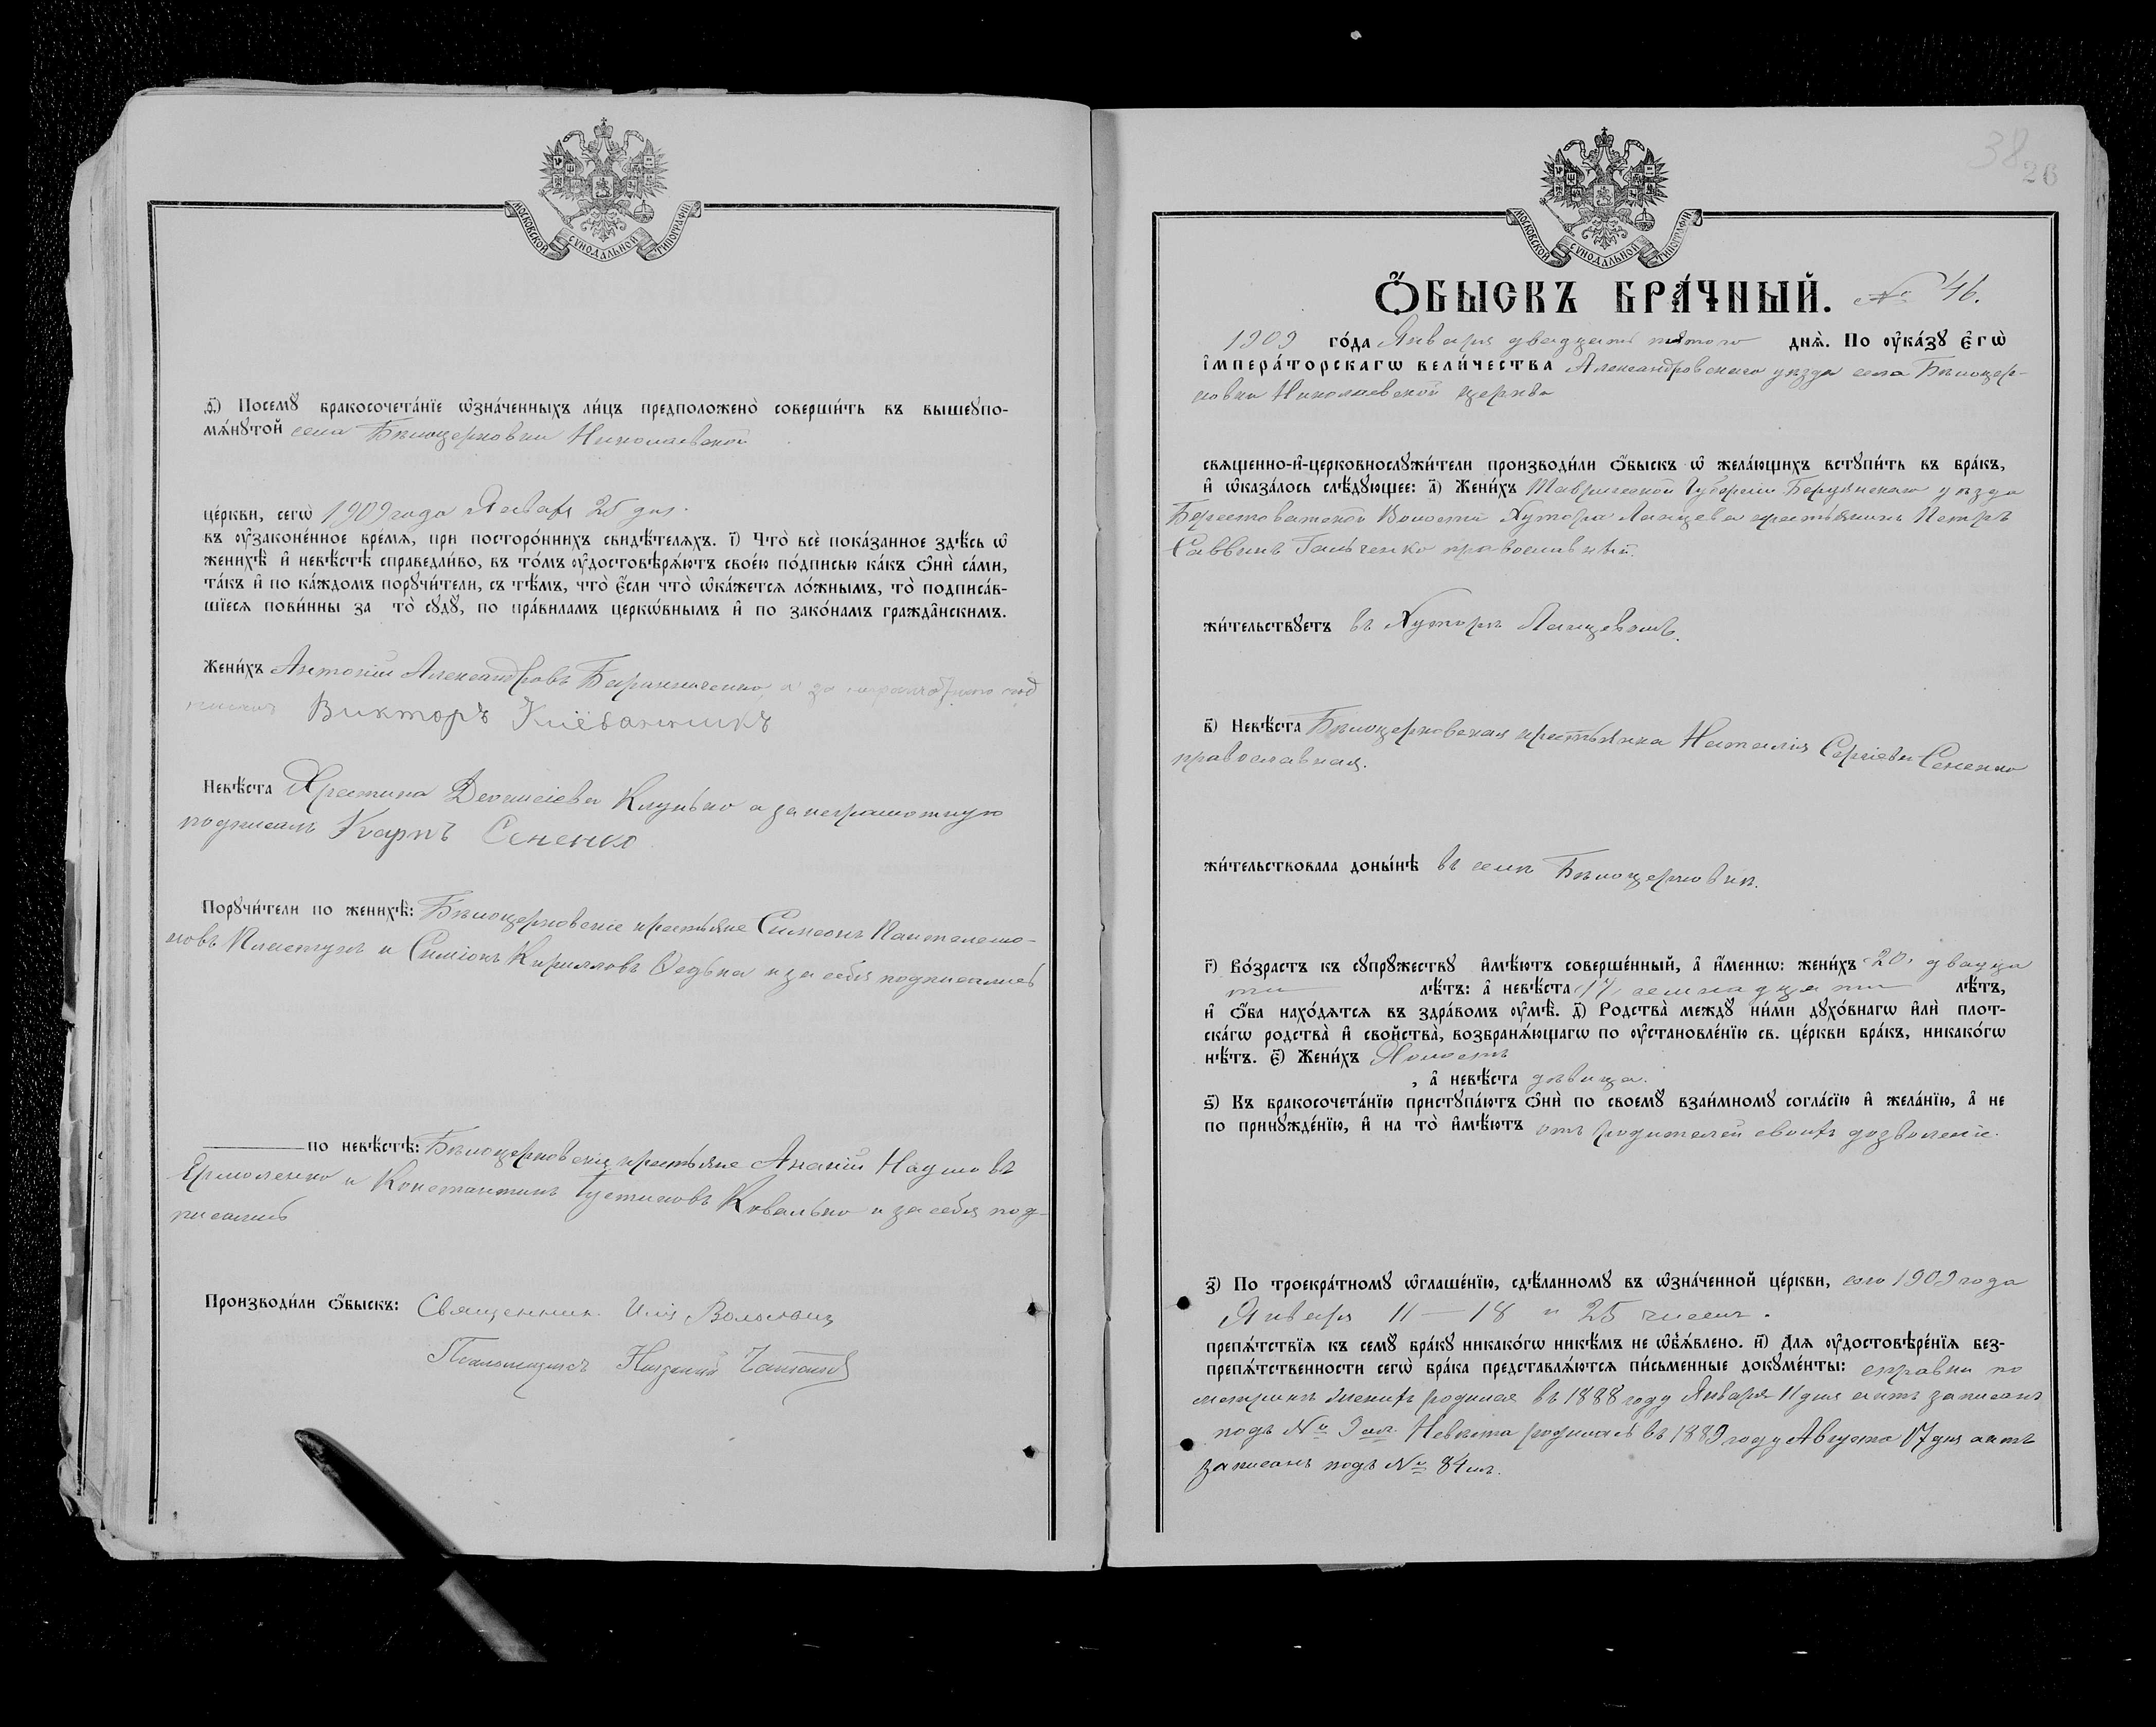 МОСКОВСКОЙ СѴНОДАЛЬНОЙ ТИПОГРАФІИ
ѳ҃) Посемꙋ бракосочета́нїе ѡзна́ченныхъ ли́цъ предположено̀ соверши́ть въ вышеꙋпо-
мѧ́нꙋтой села Бѣлоцерковки Николаевской
це́ркви, сегѡ̀ 1909 года Января 25 дня.
въ ѹ҆зако́ненное вре́мѧ, при посторо́ннихъ свидѣ́телѧхъ. і҃) Что̀ всѐ пока́занное здѣ́сь ѡ҆
женихѣ̀ и҆ невѣ́стѣ справедли́во, въ то́мъ ѹ҆достовѣрѧ́ютъ свое́ю по́дписью ка́къ ѻ҆нѝ са́ми,
та́къ и҆ по ка́ждомъ порꙋчи́тели, съ тѣ́мъ, что̀ є҆́сли что̀ ѡ҆ка́жетсѧ ло́жнымъ, то̀ подписа́в-
шїесѧ пови́нны за то̀ сꙋдꙋ̀, по пра́виламъ церкѡ́внымъ и҆ по зако́намъ гражда́нскимъ.
Жени́хъ Антоній Александровъ а за неграмотнаго под
писалъ Викторъ
Невѣ́ста Христина Діонисіева Клунько а за неграмотную
подписалъ Карпъ Сененко
Порꙋчи́тели по женихѣ̀: Бѣлоцерковскіе крестьяне Симеонъ Пантелеимо-
новъ Пластунъ и Симіонъ Кирилловъ Ѳедька и за себя подписались
по невѣ́стѣ: Бѣлоцерковскіе крестьяне Ананій Наумовъ
Ермоленко и Константинъ Іустиновъ Ковалько и за себя под-
писались
Производи́ли ѻ҆́быскъ: Священникъ Илія
Псаломщикъ
38
26
МОСКОВСКОЙ СѴНОДАЛЬНОЙ ТИПОГРАФІИ
Ѻ҆́БЫСКЪ БРА́ЧНЫЙ. № 46.
1909 го́да Января двадцать пятаго днѧ̀. По ѹ҆ка́зꙋ є҆гѡ̀
і҆мпера́торскагѡ вели́чества Александровскаго уѣзда села Бѣлоцер-
ковки Николаевской церкви
свѧщенно-и҆-церковнослꙋжи́тели производи́ли ѻ҆́быскъ ѡ҆ жела́ющихъ встꙋпи́ть въ бра́къ,
и҆ ѡ҆каза́лось слѣ́дꙋющее: а҃) Жени́хъ Таврической Губерніи Бердянскаго уѣзда
Берестоватской Волости Хутора Ланцева крестьянинъ Петръ
Саввинъ Гальченко православный.
жи́тельствꙋетъ въ Хуторѣ Ланцевомъ.
в҃) Невѣ́ста Бѣлоцерковская крестьянка Наталія Сергіева Сененко
православная.
жи́тельствовала доны́нѣ въ селѣ Бѣлоцерковкѣ.
г҃) Во́зрастъ къ сꙋпрꙋ́жествꙋ и҆мѣ́ютъ соверше́нный, а҆ и҆́меннѡ: жени́хъ 20, двадца
ти лѣ́тъ: а҆ невѣ́ста 17, семнадцати лѣ́тъ,
и҆ ѻ҆́ба нахо́дѧтсѧ въ здра́вомъ ѹ҆мѣ̀. д҃) Родства̀ междꙋ̀ ни́ми дꙋхо́внагѡ и҆лѝ плот-
ска́гѡ родства̀ и҆ свойства̀, возбранѧ́ющагѡ по ѹ҆становле́нїю св. це́ркви бра́къ, никако́гѡ
нѣ́тъ. є҃) Жени́хъ Холостъ
, а҆ невѣ́ста дѣвица.
ѕ҃) Къ бракосочета́нїю пристꙋпа́ютъ ѻ҆нѝ по своемꙋ̀ взаи́мномꙋ согла́сїю и҆ жела́нїю, а҆ не
по принꙋжде́нїю, и҆ на то̀ и҆мѣ́ютъ отъ родителей своихъ дозволеніе.
з҃) По троекра́тномꙋ ѡ҆глаше́нїю, сдѣ́ланномꙋ въ ѡ҆зна́ченной це́ркви, сего 1909 года
Января 11 — 18 и 25 числъ.
препѧ́тствїѧ къ семꙋ̀ бра́кꙋ никако́гѡ никѣ́мъ не ѡ҆б̾ѧ́влено. и҃) Длѧ ѹ҆достовѣре́нїѧ без-
препѧ́тственности сегѡ̀ бра́ка представлѧ́ютсѧ пи́сьменные докꙋме́нты: справки по
метрикѣ женихъ родился въ 1888 году Января 11 дня актъ записанъ
подъ № 9 ом. Невѣста родилась въ 1889 году Августа 17 дня актъ
записанъ подъ № 84 мъ.